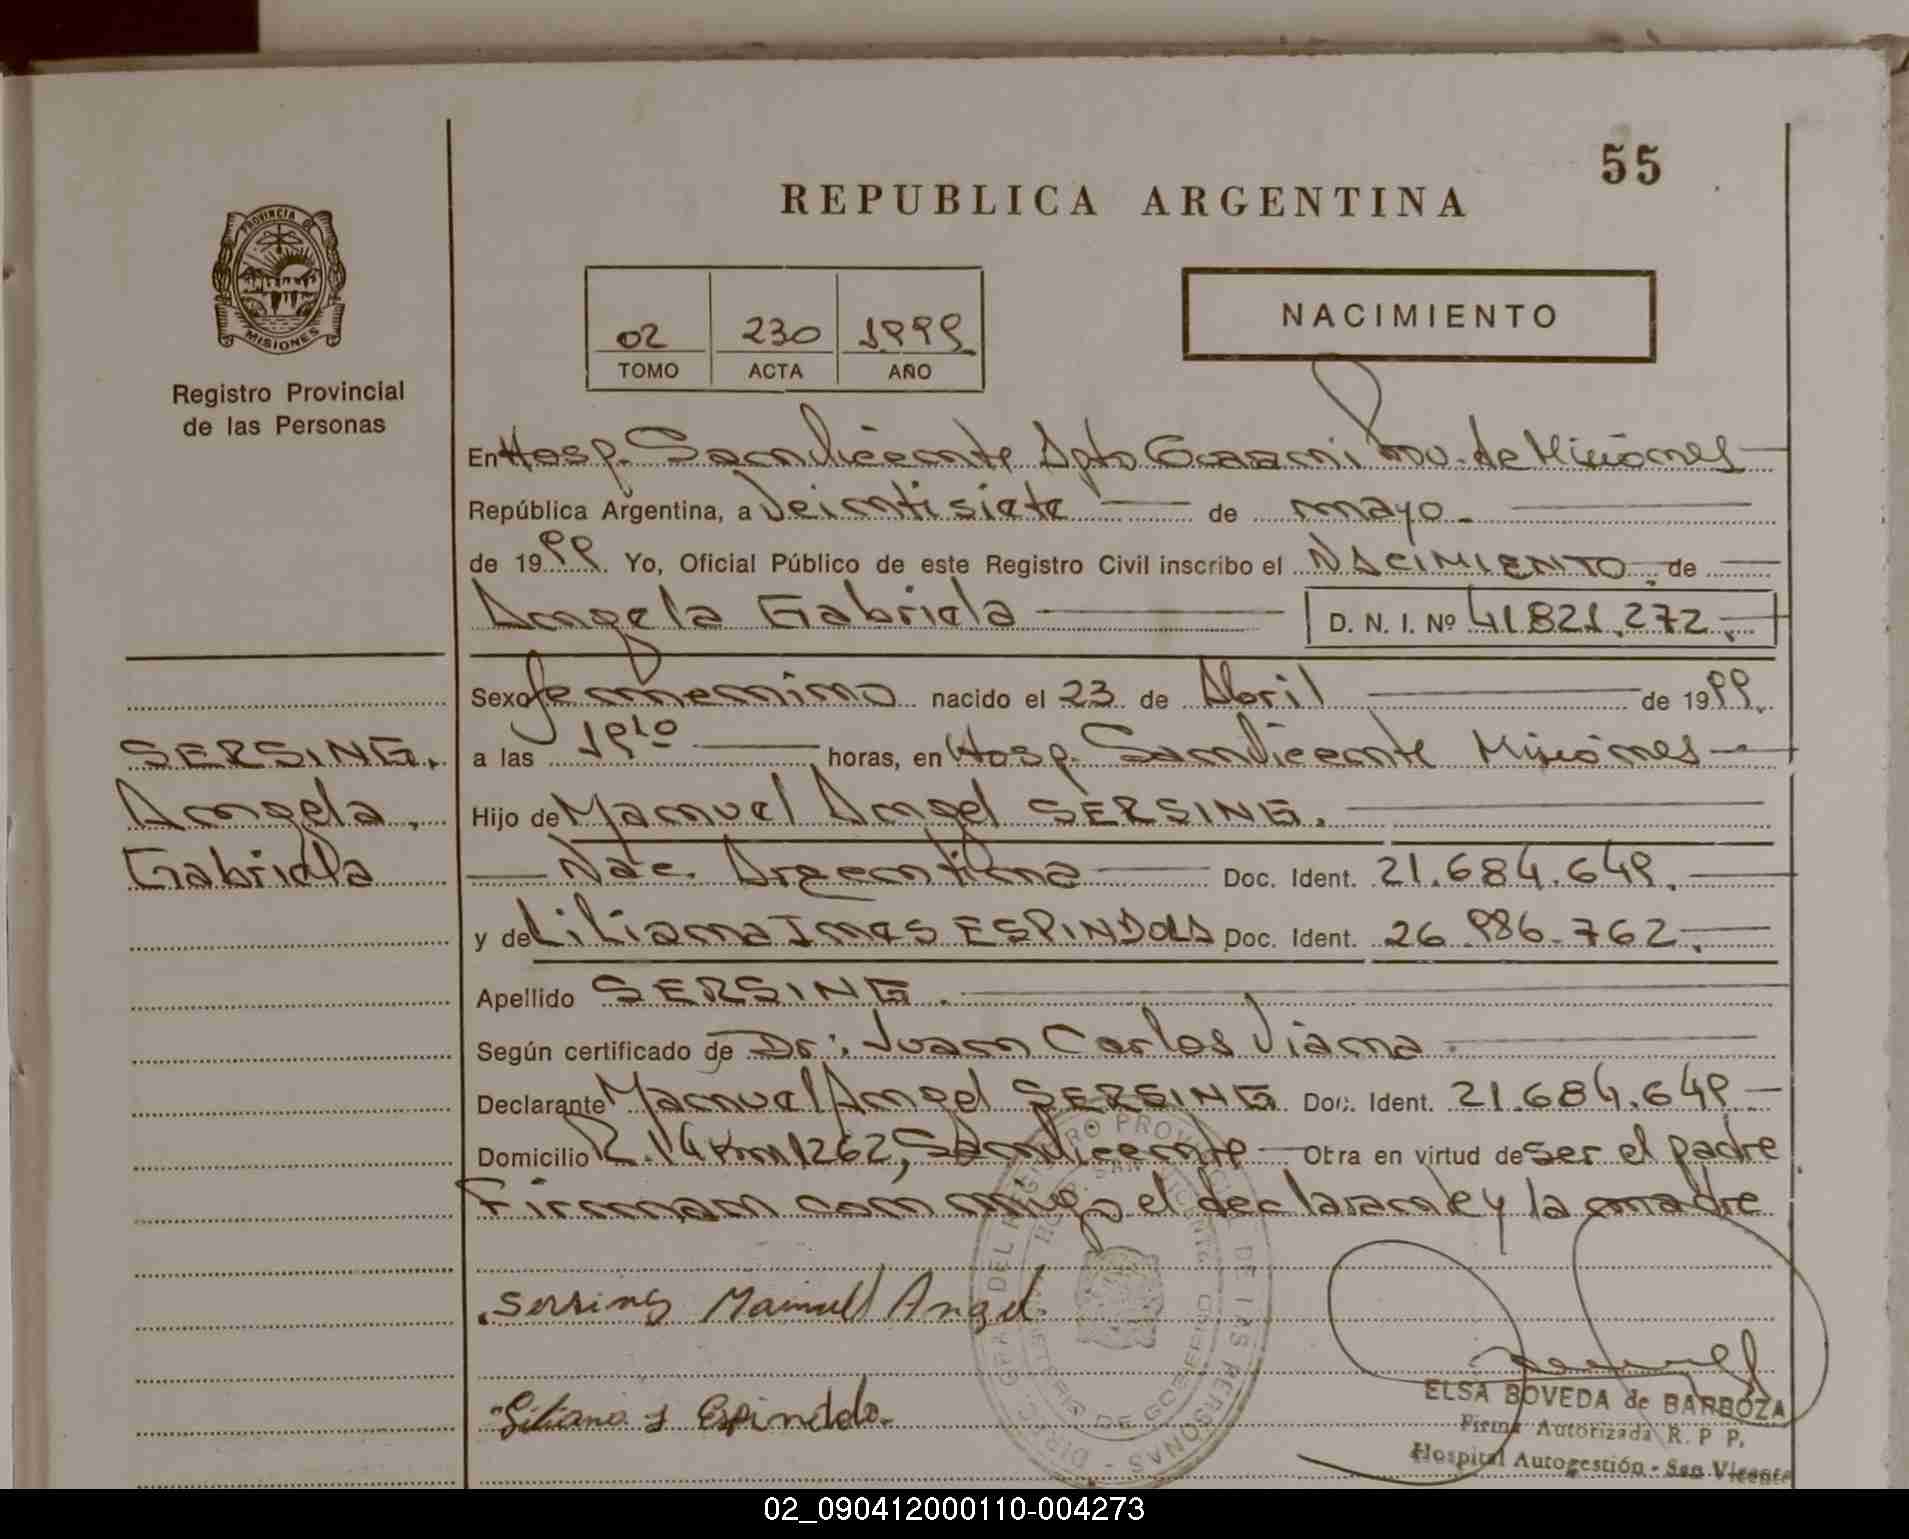 55
REPUBLICA ARGENTINA
PROVINCIA
MISIONES
Registro Provincial
de las Personas
02 230 1999
TOMO ACTA AÑO
NACIMIENTO
En Hosp. San Vicente Dpto Guarani Prov. de Misiones
República Argentina, a Veintisiete de mayo.
de 1999. Yo, Oficial Público de este Registro Civil inscribo el NACIMIENTO de
Angela Gabriela D. N. I. Nº 41.821.272.
Sexo femenino nacido el 23 de Abril de 1999.
a las 19¹⁰ horas, en Hosp. San Vicente Misiones
SERSING.
Angela.
Gabriela
Hijo de Manuel Angel SERSING.
Nac. Argentina Doc. Ident. 21.684.649.
y de Liliana Ines ESPINDOLA Doc. Ident. 26.986.762.
Apellido SERSING.
Según certificado de Dr: Juan Carlos Viana.
Declarante Manuel Angel SERSING Doc. Ident. 21.684.649
Domicilio R.14 Km 1262, San Vicente Obra en virtud de ser el padre
Firman con migo el declarante y la madre
Sersing Manuel Angel.
Liliana I Espindola.
ELSA BOVEDA de BARBOZA
Firma Autorizada R. P P.
Hospital Autogestión - San Vicente
02_090412000110-004273